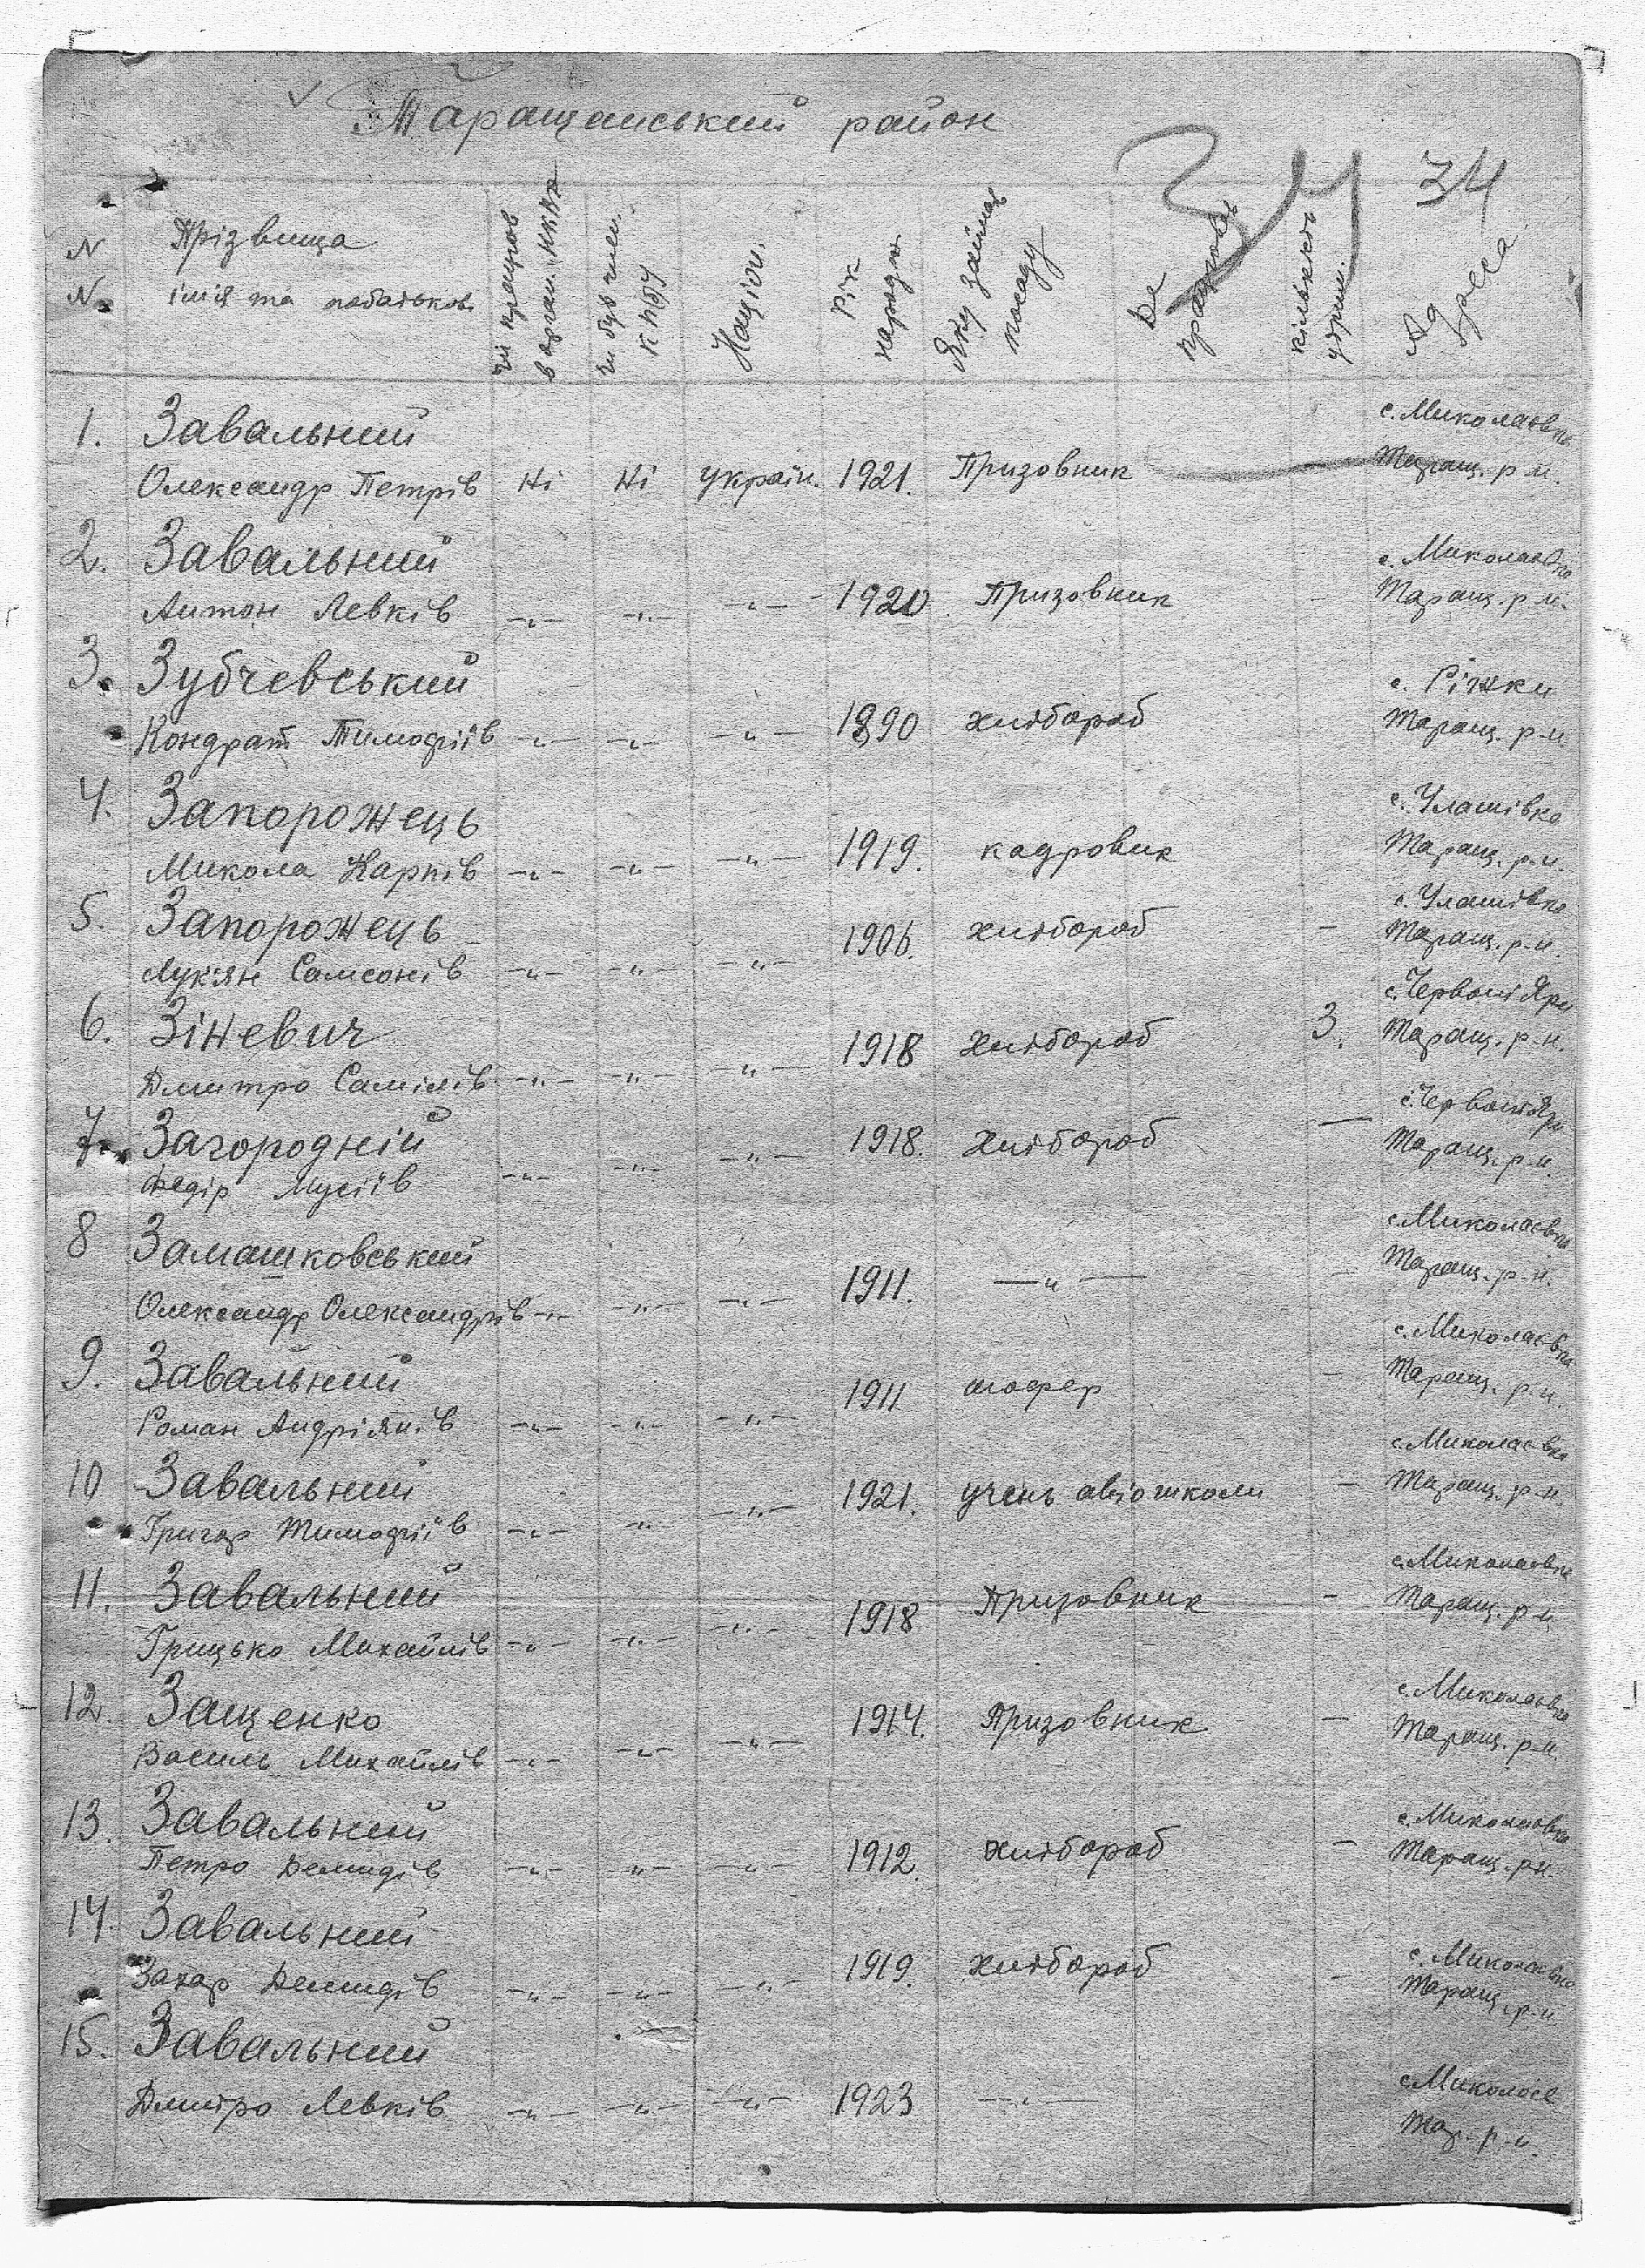 Таращанський район
34 34
N N Прізвища імія та побатьков. чи працюв в орган. НКВД чи був член. КП(б)У Націон. Рік народж. Яку займав посаду Де працював кількість утрим. Адреса
1. Завальний с. Миколаєвка
Олександр Петрів Ні Ні україн. 1921. Призовник Таращ. р-н.
2. Завальний с. Миколаєвка
Антон Левків -"- -"- -"- 1920 Призовник - Таращ. р-н.
3. Зубчевський с. Ріжки
Кондрат Тимофіїв -"- -"- -"- 1890 хлібороб Таращ. р-н.
4. Запорожець с. Улашівка
Микола Карпів -"- -"- -"- 1919. кадровик Таращ. р-н.
5. Запорожець с. Улашівка
Лукян Самсонів -"- -"- -"- 1906. хлібороб - Таращ. р-н.
6. Зіневич с. Червоні Яри
Дмитро Самілів -"- -"- -"- 1918 хлібороб 3. Таращ. р-н.
7. Загородній с. Червоні Яри
Федір Мусіїв -"- -"- -"- 1918. хлібороб - Таращ. р-н.
8 Замашковський с. Миколаєвка
Олександр Олександрів -"- -"- -"- 1911. -"- - Таращ. р-н.
9. Завальний с. Миколаєвка
Роман Андріянів -"- -"- -"- 1911 шофер - Таращ. р-н.
10 Завальний с. Миколаєвка
Григор Тимофіїв -"- -"- -"- 1921. учень авіошколи - Таращ. р-н.
11. Завальний с. Миколаєвка
Грицько Михайлів -"- -"- -"- 1918 Призовник - Таращ. р-н
12. Защенко с. Миколаєвка
Василь Михайлів -"- -"- -"- 1914. Призовник - Таращ. р-н.
13. Завальний с. Миколаєвка
Петро Демидів -"- -"- -"- 1912. хлібороб - Таращ. р-н
14. Завальний с. Миколаєвка
Захар Демидів -"- -"- -"- 1919. хлібороб - Таращ. р-н
15. Завальний с. Миколаєв
Дмитро Левків -"- -"- -"- 1923 -"- Тар. р-н.